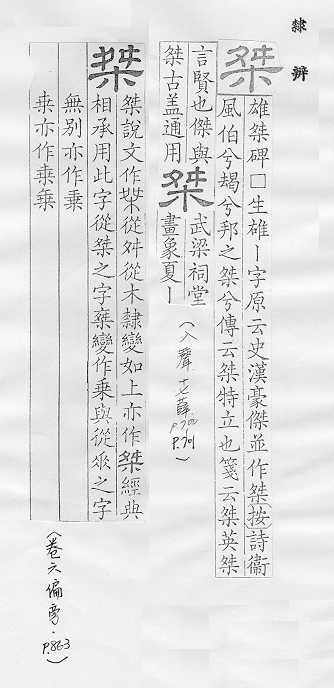 隸辨
桀
雄桀碑□生雄丨字原云史漢豪傑並作桀(按)詩衞
風伯兮朅兮邦之桀兮傳云桀特立也箋云桀英桀
言賢也傑與
桀古盖通用
桀
武梁祠堂
畫象夏丨
(入聲十七薛 P.700
P.701)
桀
桀說文作桀從舛從木隸變如上亦作桀經典
相承用此字從桀之字椉變作乗與從乑之字
無別亦作乘
亦作
(卷六偏旁·P.863)